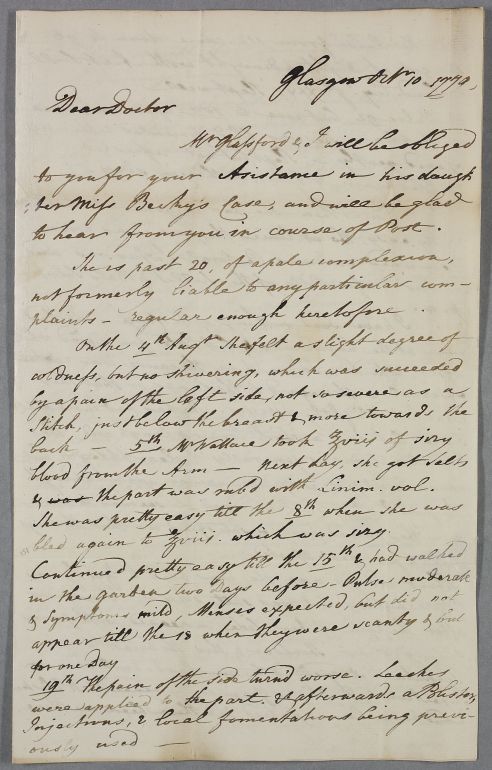 Glasgow Octr. 10 1770,
Dear Doctor
Mr Glassford & I will be obliged
to you for your Asistance in his daugh
:ter Miss Becky's Case, and will be glad
to hear from you in course of Post.
She is past 20, of a pale complexion,
not formerly liable to any particular com-
plaints - regular enough heretofore
On the 4th Augt She felt a slight degree of
coldness, but no shivering, which was succeeded
by a pain of the left side, not so severe as a
Stitch, just below the breast & more towards the
back - 5th Mr Wallace took ℥viij of sizy
blood from the Arm - Next day, she got Salts
& was the part was rub'd with Linim. vol.
She was pretty easy till the 8th when she was
bled again to ℥viij. which was sizy.
Continued pretty easy till the 15th & had walked
in the garden two days before - Pulse moderate
& Symptoms mild, Menses expected, but did not
appear till the 18 when they were scanty & but
for one Day
19th The pain of the side turn'd worse. Leeches
were applied to the part, & afterwards a Blister,
Injections, & local fomentations being previ-
ously used -